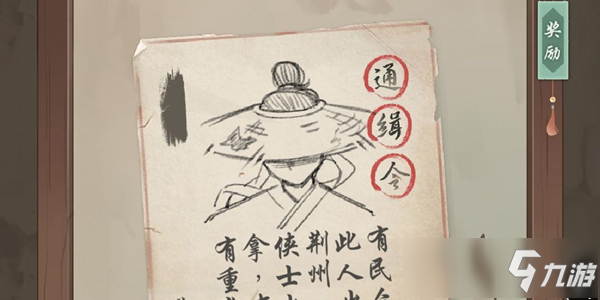 奖励
通缉令
有民
此人
荆州
侠士
拿，
有重
九游